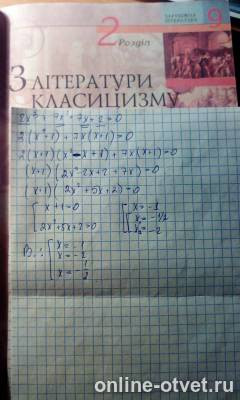 ЗАРУБІЖНА
ЛІТЕРАТУРА 9
2 Розділ
З ЛІТЕРАТУРИ
КЛАСИЦИЗМУ
2x³ + 7x² + 7x + 2 = 0
2(x³+1) + 7x(x+1) = 0
2(x+1)(x²-x+1) + 7x(x+1) = 0
(x+1)(2x²-2x+2+7x) = 0
(x+1)(2x²+5x+2) = 0
x+1=0 x=-1
2x²+5x+2=0 x₁=-1/2
x₂=-2
В: x=-1
x=-2
x=-1/2
online-otvet.ru